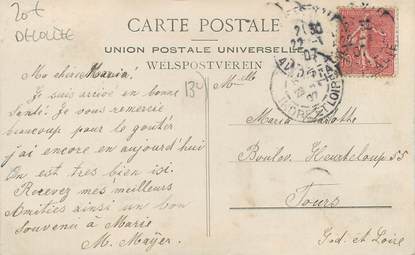 20f
CARTE POSTALE
UNION POSTALE UNIVERSELLE
WELSPOSTVEREIN
Ma cher Maria!
Je suis arrivé en bonne
Santé! Je vous remercie
beaucoup pour le goutér
j'ai encore en aujourd'hui
On est tres bien isi.
Recevez mes meilleurs
Amitiés ainsi un bon
Souvenir à Marie
M. Mayer.
130
Melle
Maria
Boulev. Heurteloup 55
Tours
Ind. et Loire
21 30
22
07
LOIRE